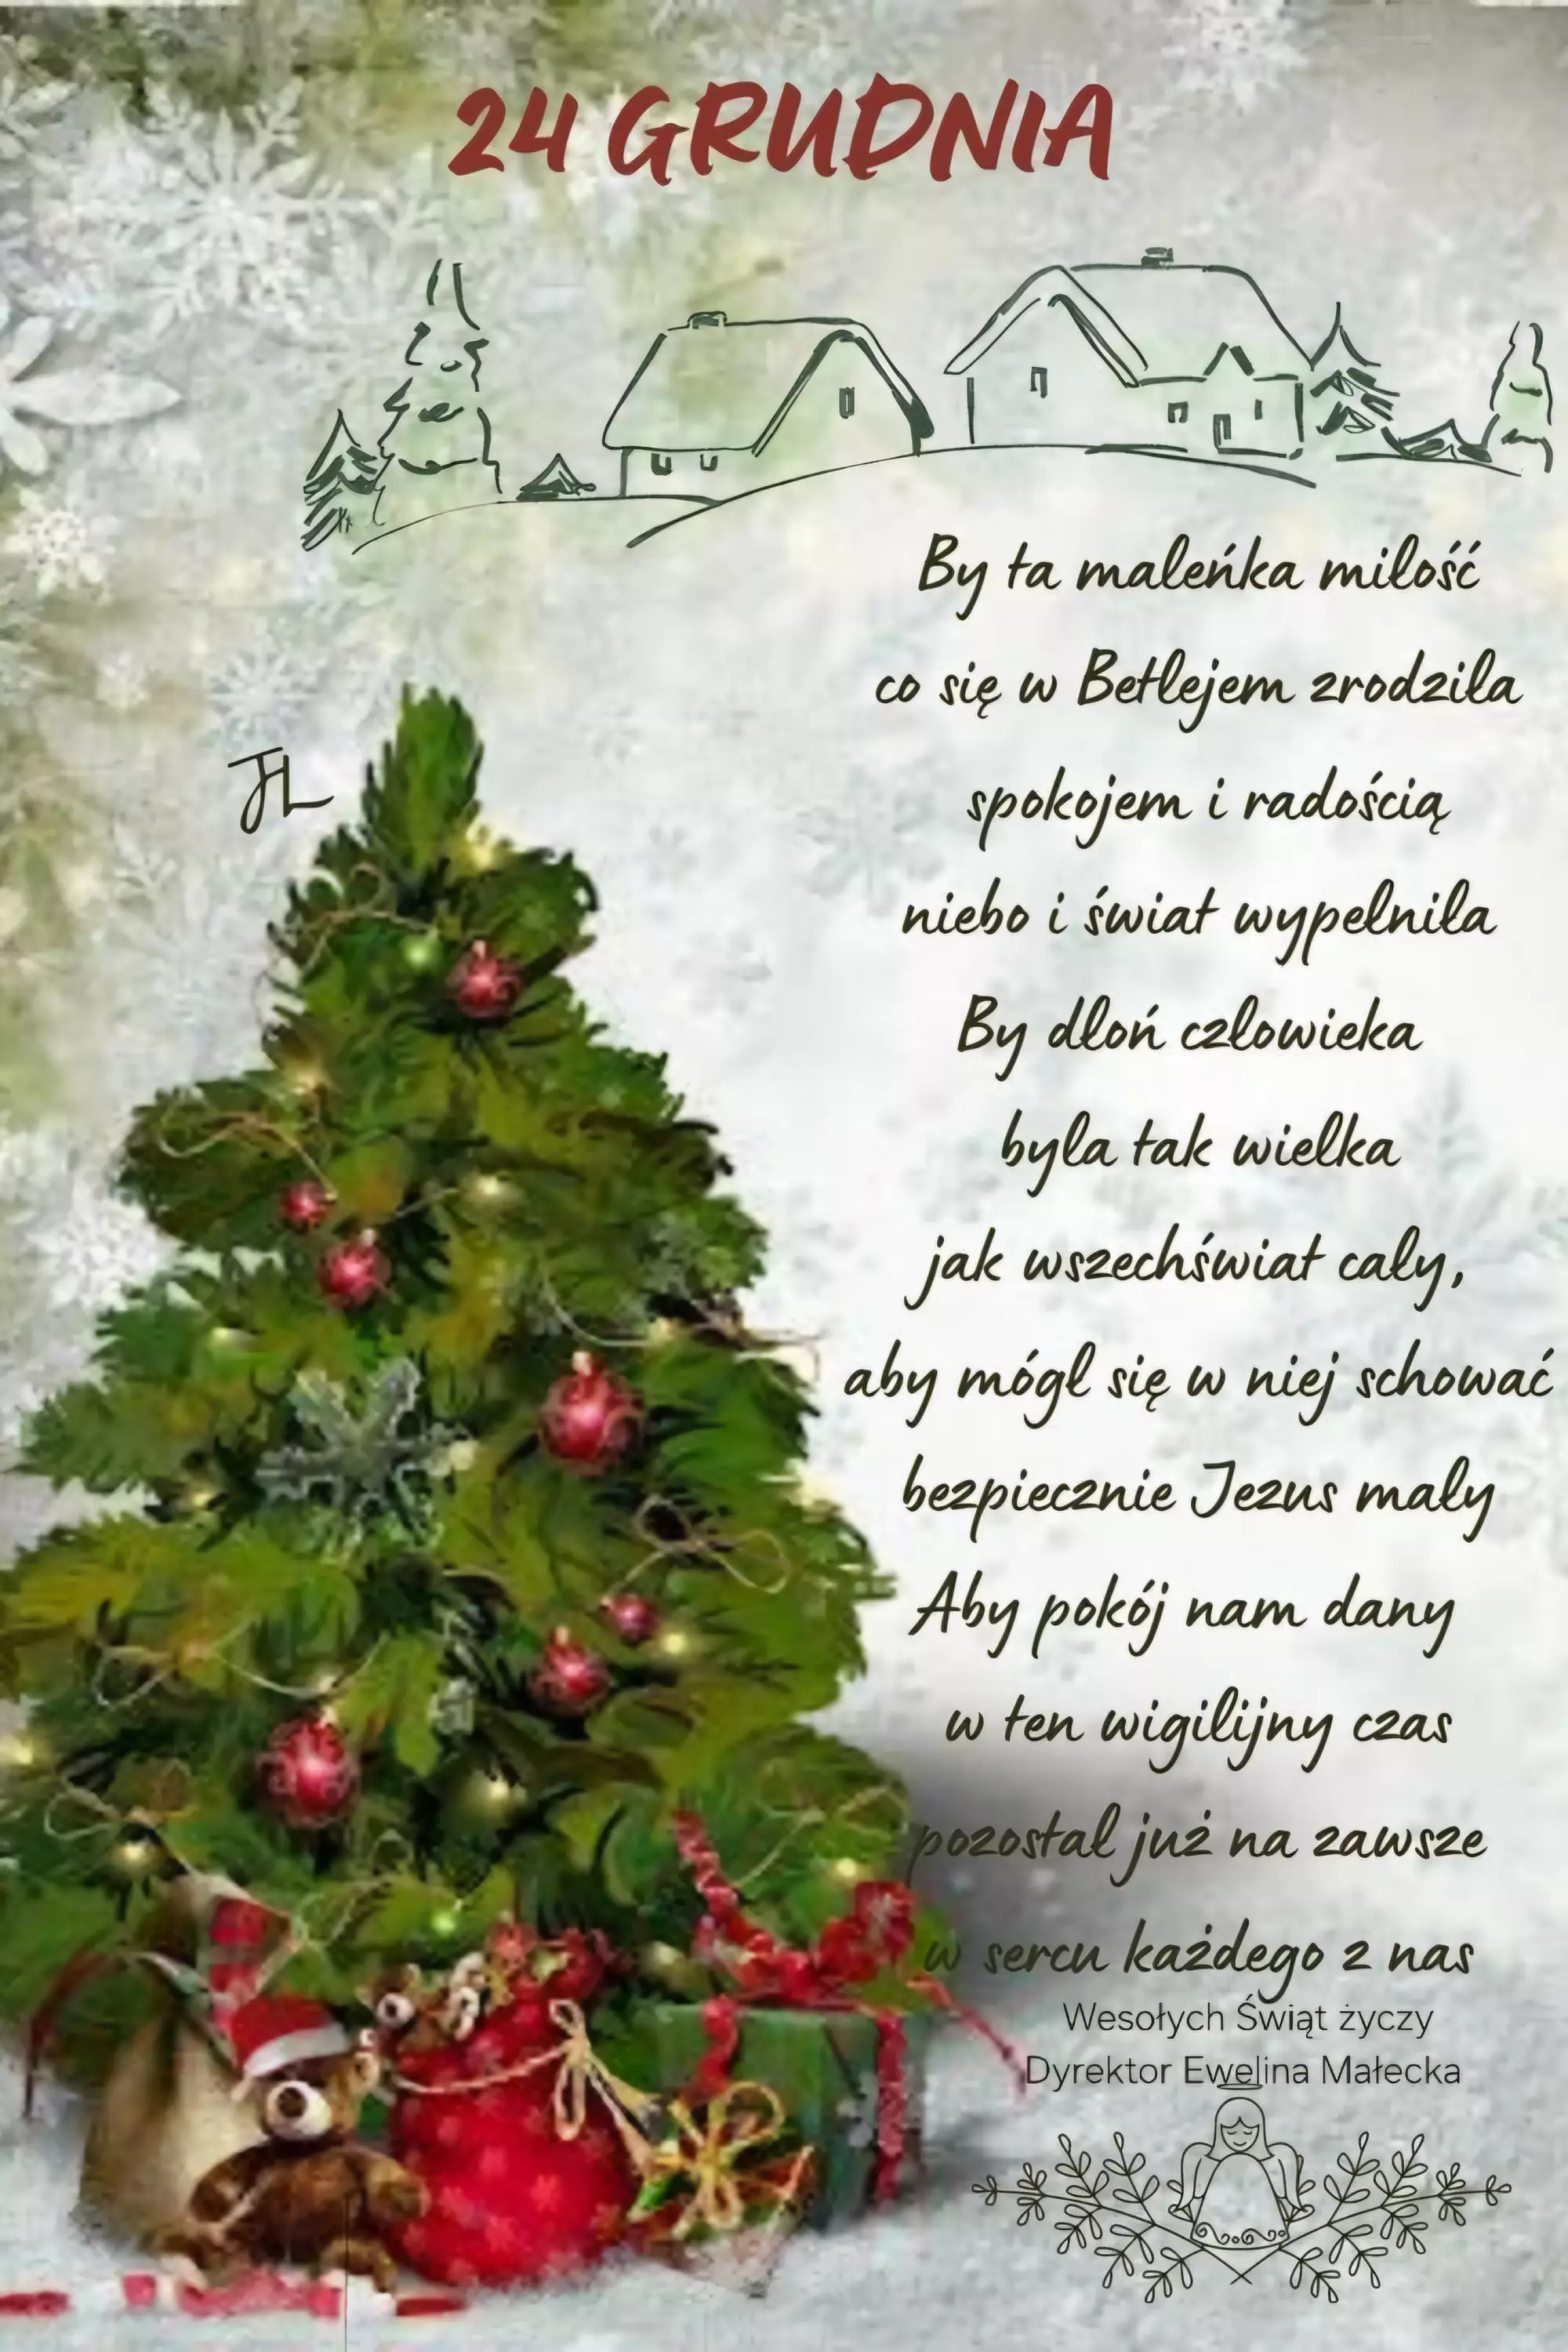 24 GRUDNIA
By ta maleńka miłość
co się w Betlejem zrodziła
spokojem i radością
niebo i świat wypełniła
By dłoń człowieka
była tak wielka
jak wszechświat cały,
aby mógł się w niej schować
bezpiecznie Jezus mały
Aby pokój nam dany
w ten wigilijny czas
pozostał już na zawsze
w sercu każdego z nas
Wesołych Świąt życzy
Dyrektor Ewelina Małecka